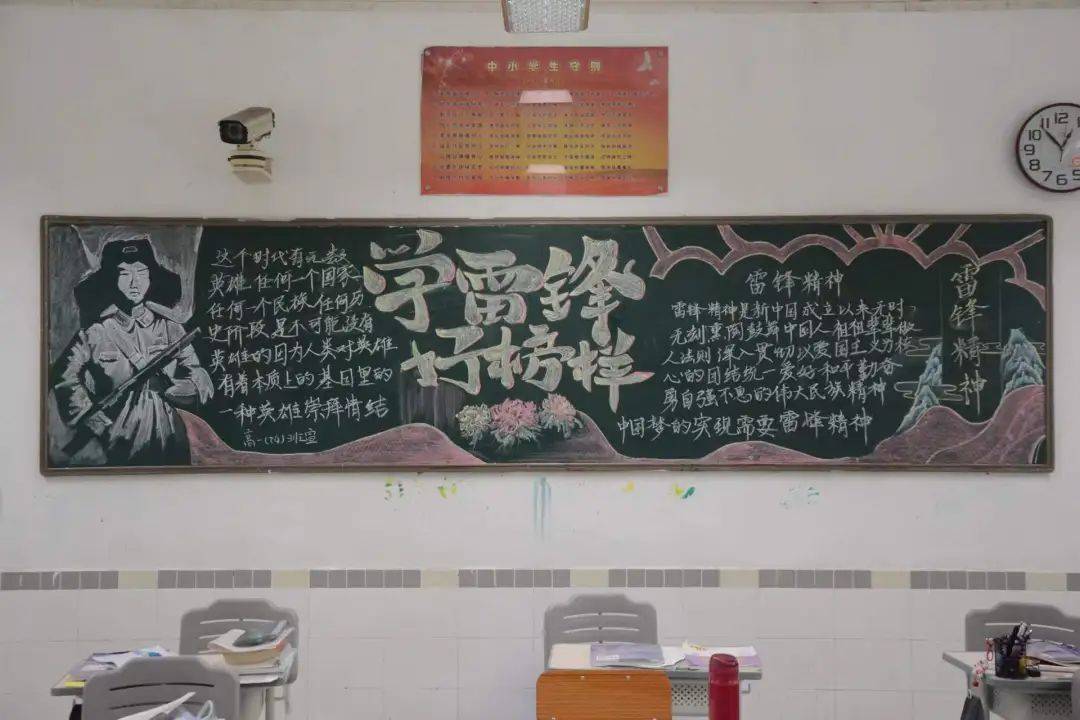 中小学生守则
这个时代有无数
英雄,任何一个国家
任何一个民族,任何历
史阶段是不可能没有
英雄的因为人类对英雄
有着本质上的基因里的
一种英雄崇拜情结
高一班宣
学雷锋
好榜样
雷锋精神
雷锋精神是新中国成立以来无时
无刻熏陶鼓舞中国人祖祖辈辈做
人法则深入贯彻以爱国主义为核
心的团结统一爱好和平勤奋
勇自强不息的伟大民族精神
中国梦的实现需要雷锋精神
雷锋精神
11 12
10
9
8 7 6 5